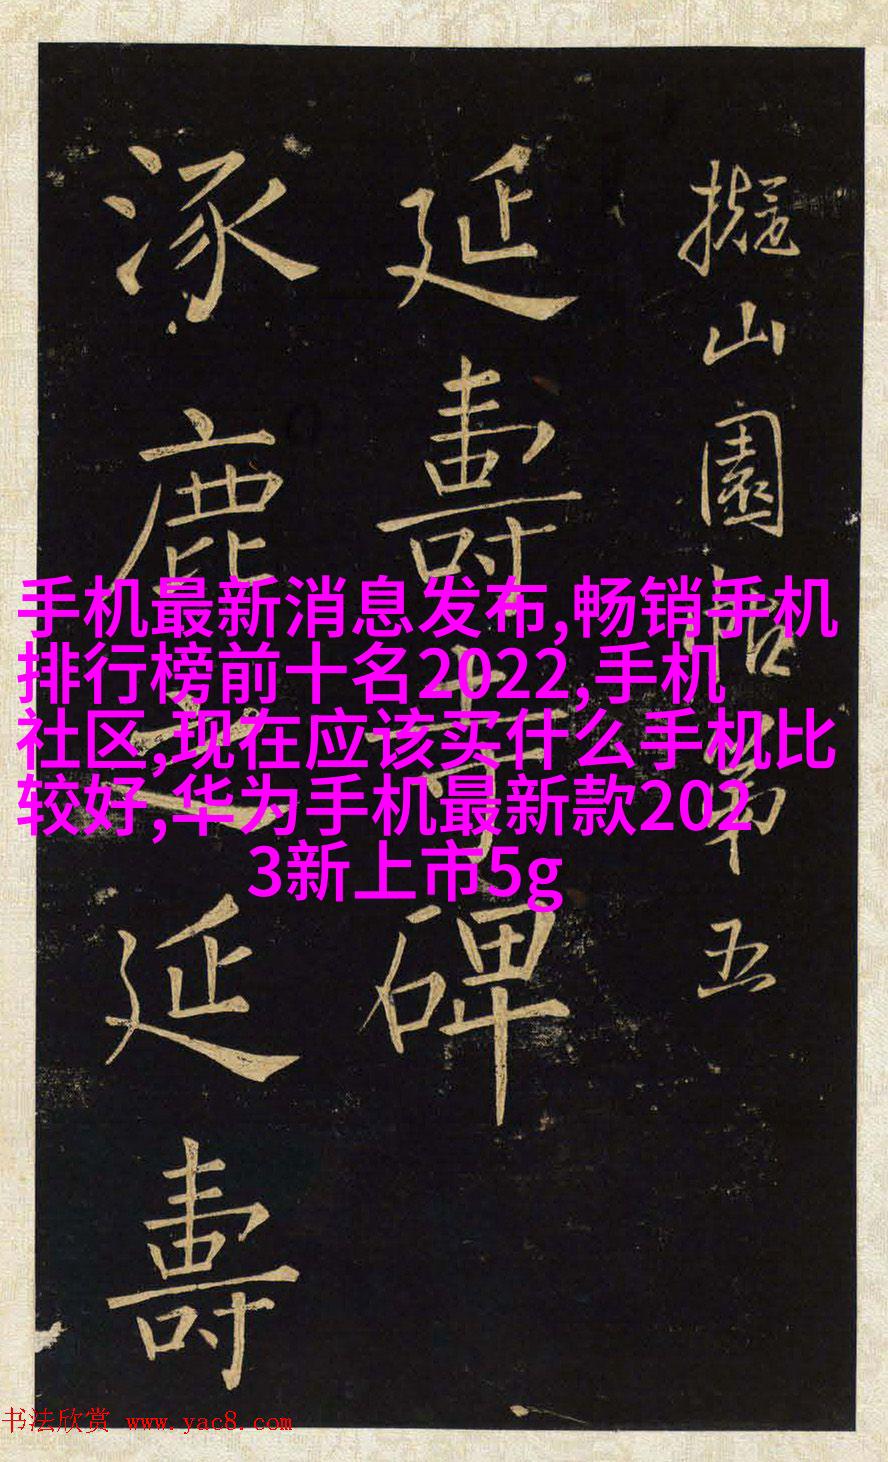 擬山園帖第五
延壽寺碑
涿鹿之延壽
手机最新消息发布,畅销手机
排行榜前十名2022,手机
社区,现在应该买什么手机比
较好,华为手机最新款202
3新上市5g
书法欣赏 www.yac8.com